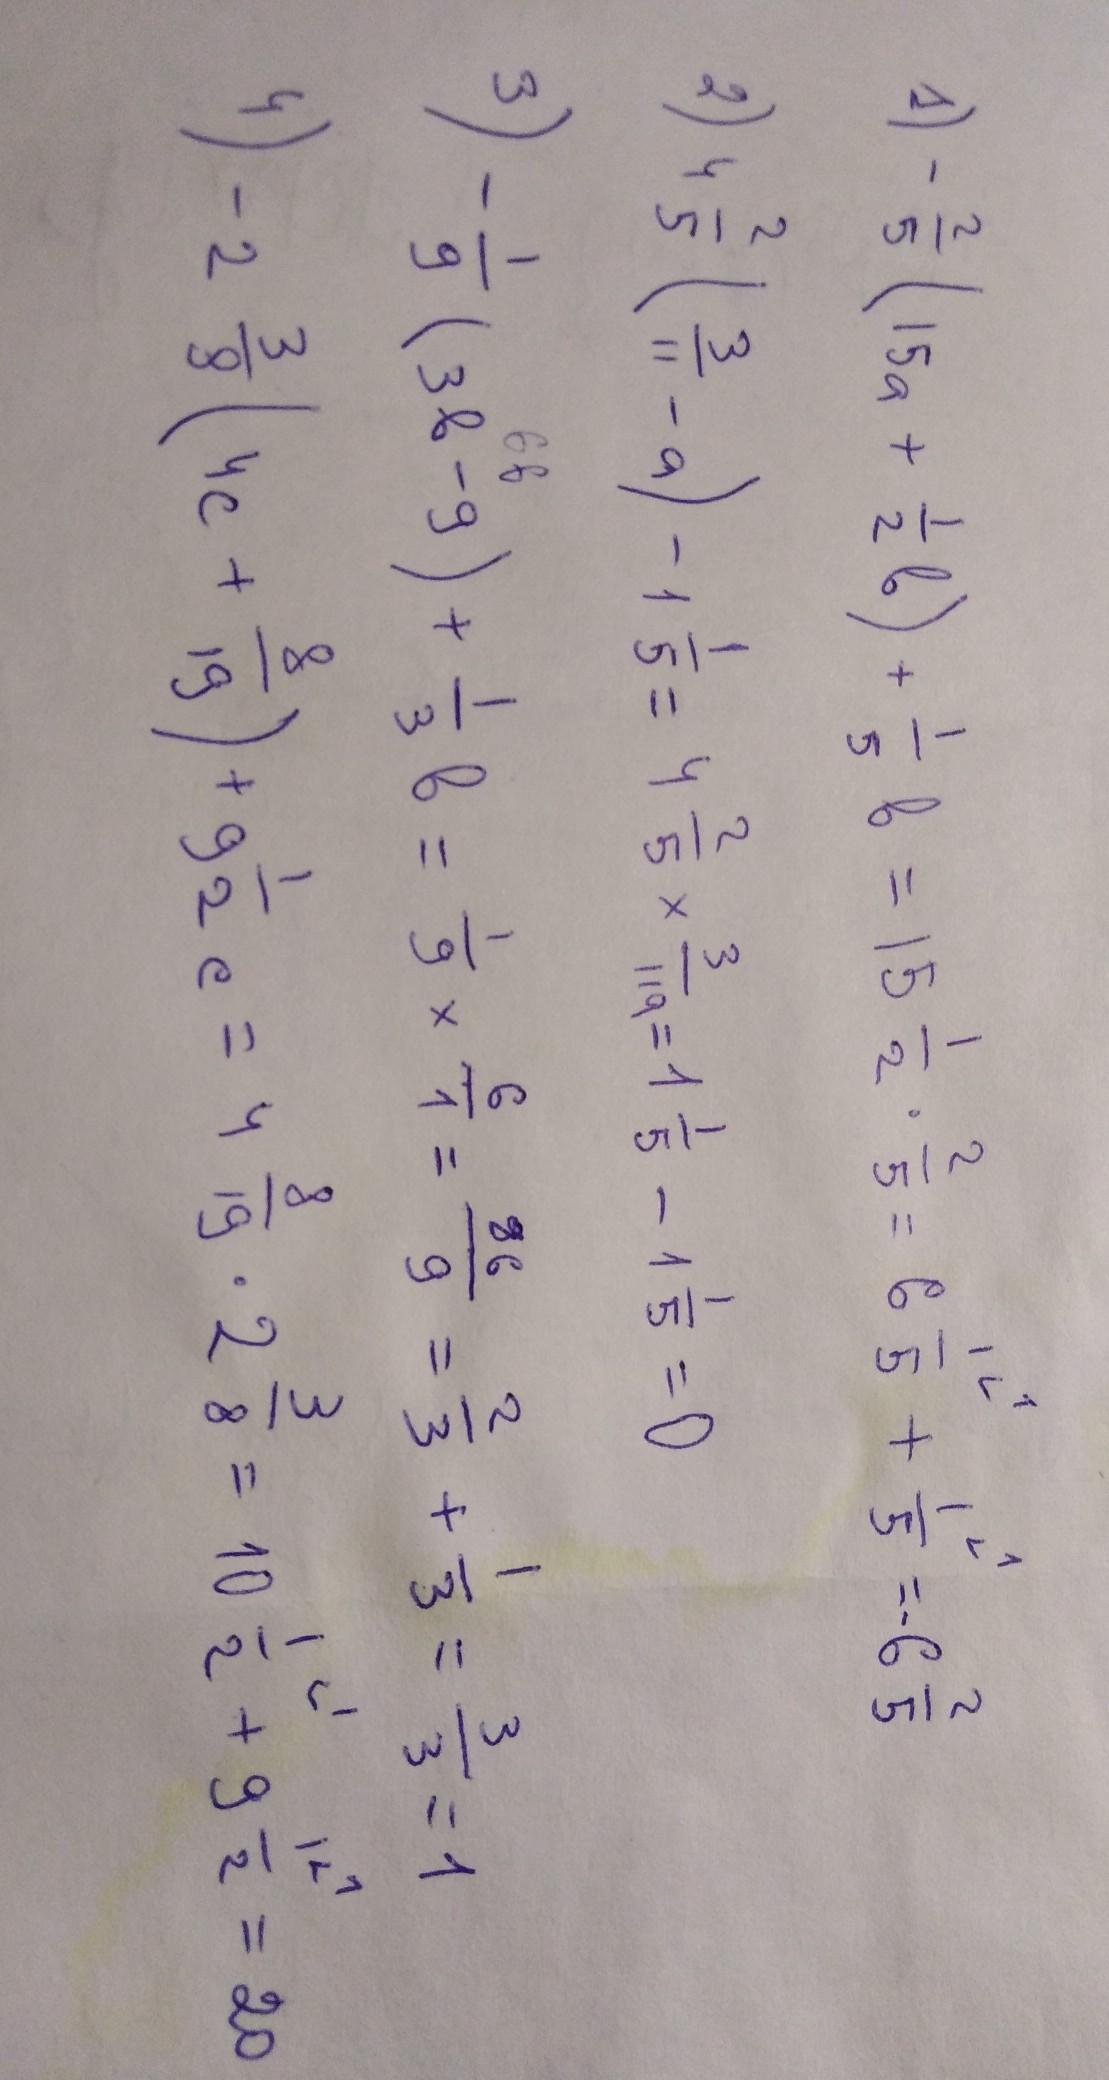 1) - 2/5 (15a + 1/2 b) + 1/5 b = 15 1/2 · 2/5 = 6 1/5 + 1/5 = -6 2/5
2) 4 2/5 (3/11 - a) - 1 1/5 = 4 2/5 × 3/11a = 1 1/5 - 1 1/5 = 0
6b
3) - 1/9 (3b - 9) + 1/3 b = 1/9 × 6/1 = 6/9 = 2/3 + 1/3 = 3/3 = 1
4) - 2 3/8 (4c + 8/19) + 9 1/2 c = 4 8/19 · 2 3/8 = 10 1/2 + 9 1/2 = 20